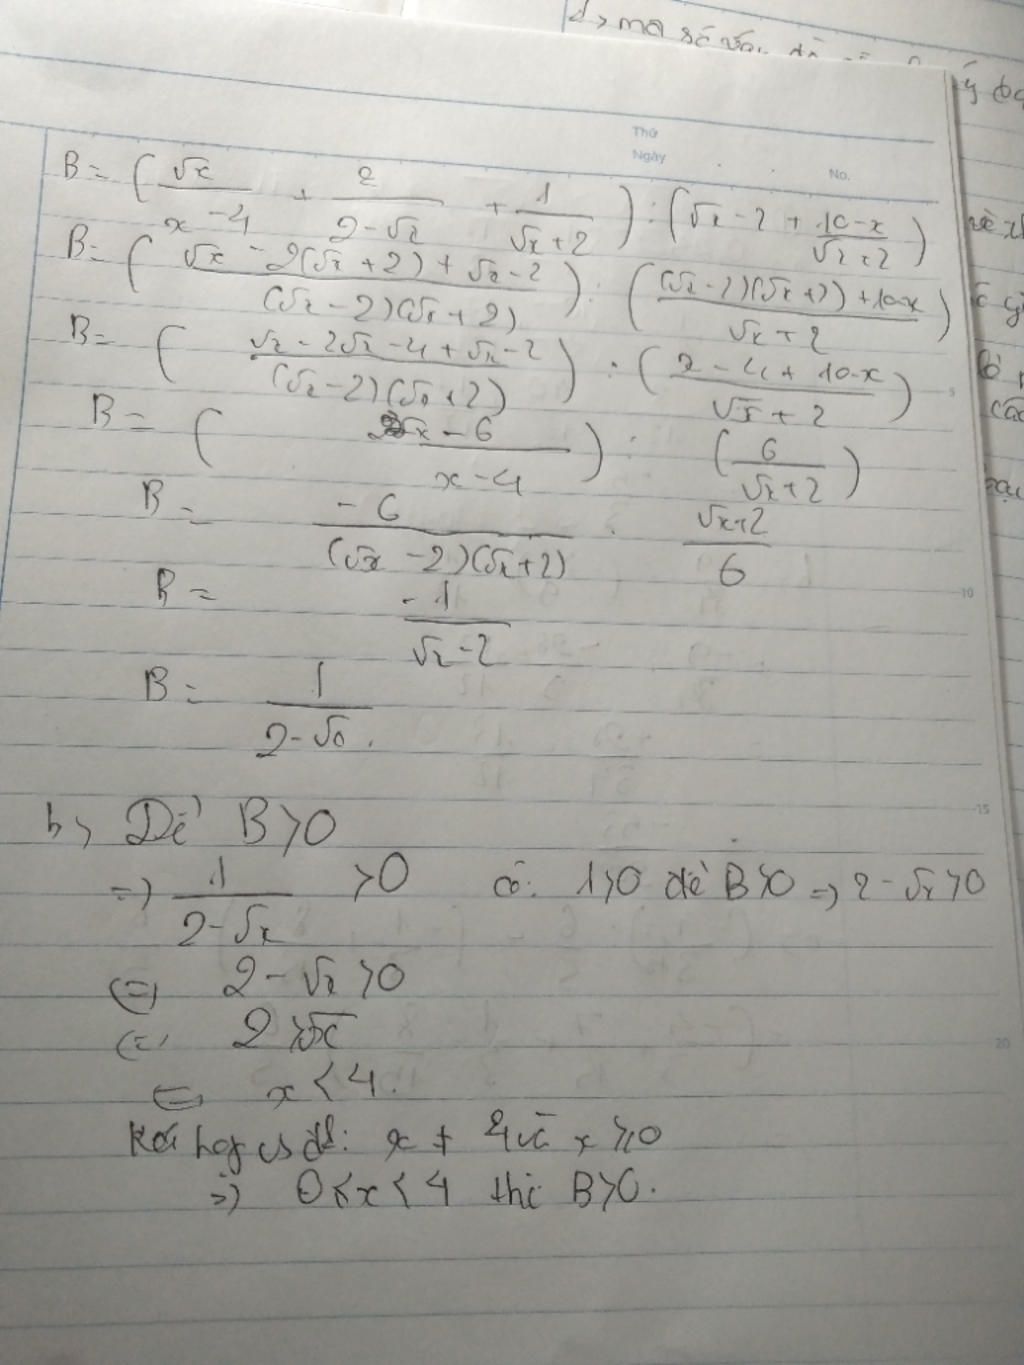 d, mα số
Thứ
Ngày
No.
B = ( √x / x - 4 + 2 / 2 - √x + 1 / √x + 2 ) : ( √x - 2 + 10 - x / √x + 2 )
B = ( √x - 2(√x + 2) + √x - 2 / (√x - 2)(√x + 2) ) : ( (√x - 2)(√x + 2) + 10 - x / √x + 2 )
B = ( √x - 2√x - 4 + √x - 2 / (√x - 2)(√x + 2) ) : ( x - 4 + 10 - x / √x + 2 )
5
B = ( - 6 / x - 4 ) : ( 6 / √x + 2 )
B = - 6 / (√x - 2)(√x + 2) . √x + 2 / 6
10
B = - 1 / √x - 2
B = 1 / 2 - √x .
15
b, Để B > 0
=> 1 / 2 - √x > 0 có: 1 > 0 để B > 0 => 2 - √x > 0
<=> 2 - √x > 0
<=> 2 > √x
20
<=> x < 4.
Kết hợp vs đk: x ≠ 4 và x ≥ 0
=> 0 ≤ x < 4 thì B > 0.